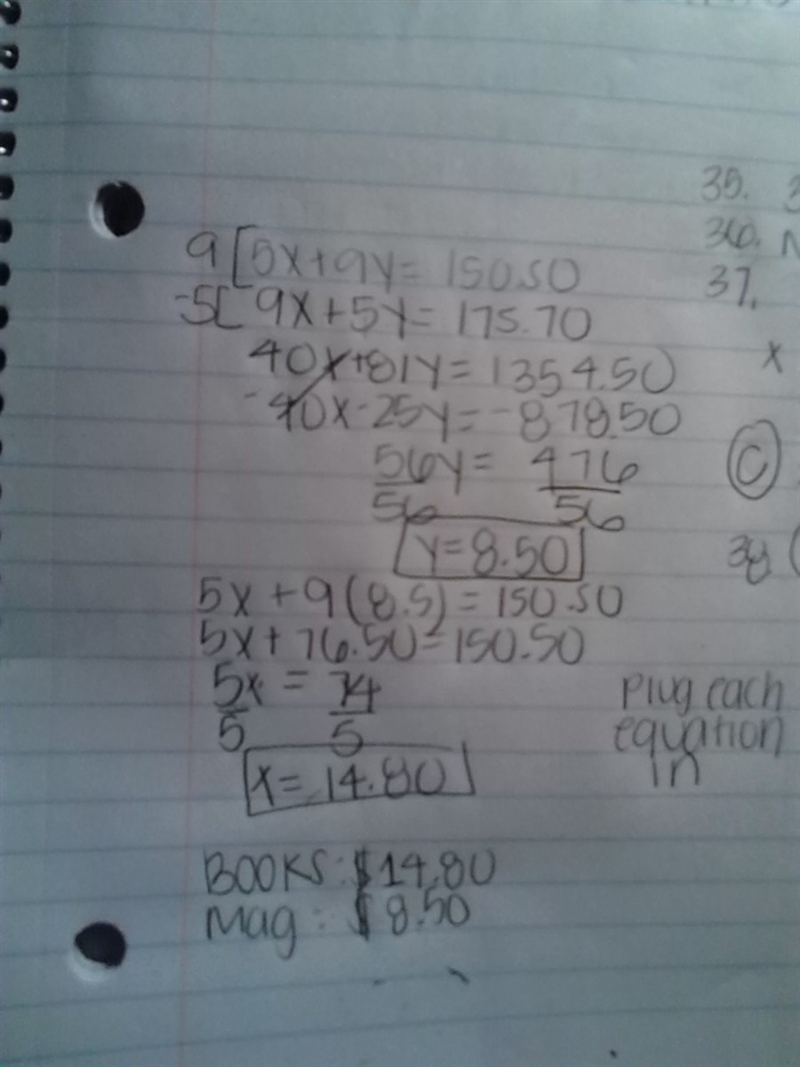 35.
36.
37.
x
C
38
9[5x+9y=150.50
-5[9x+5y=175.70
40x+81y=1354.50
-40x-25y=-878.50
56y= 476
56 56
y=8.50
5x+9(8.5)=150.50
5x+76.50=150.50
5x = 74
5 5
x=14.80
Plug each
equation
in
BOOKS: $14.80
Mag: $8.50